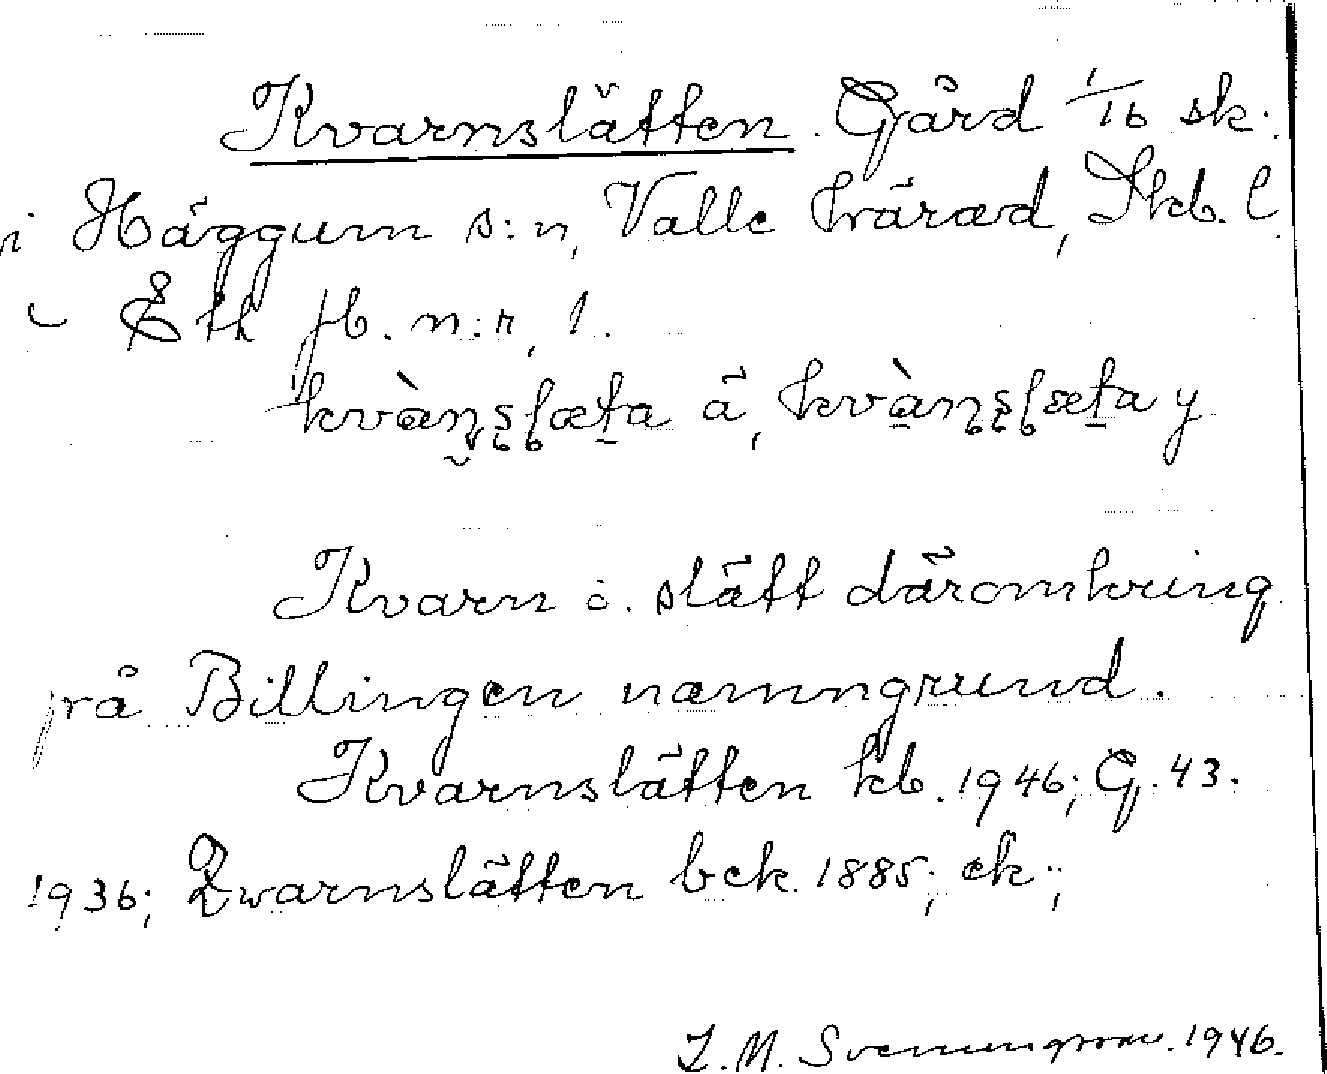 Kvarnslätten. Gård 1/16 sk.
i Häggum s:n, Valle härad, Skb. l.
jb. n:r, 1.
kvàn̥ş̥ļæta ä, kvàn̥ş̥ļæta y
Kvarn o. slätt däromkring
på Billingen namngrund.
Kvarnslätten kb. 1946; G. 43.
1936; Qwarnslätten bek. 1885; ek.;
1946.